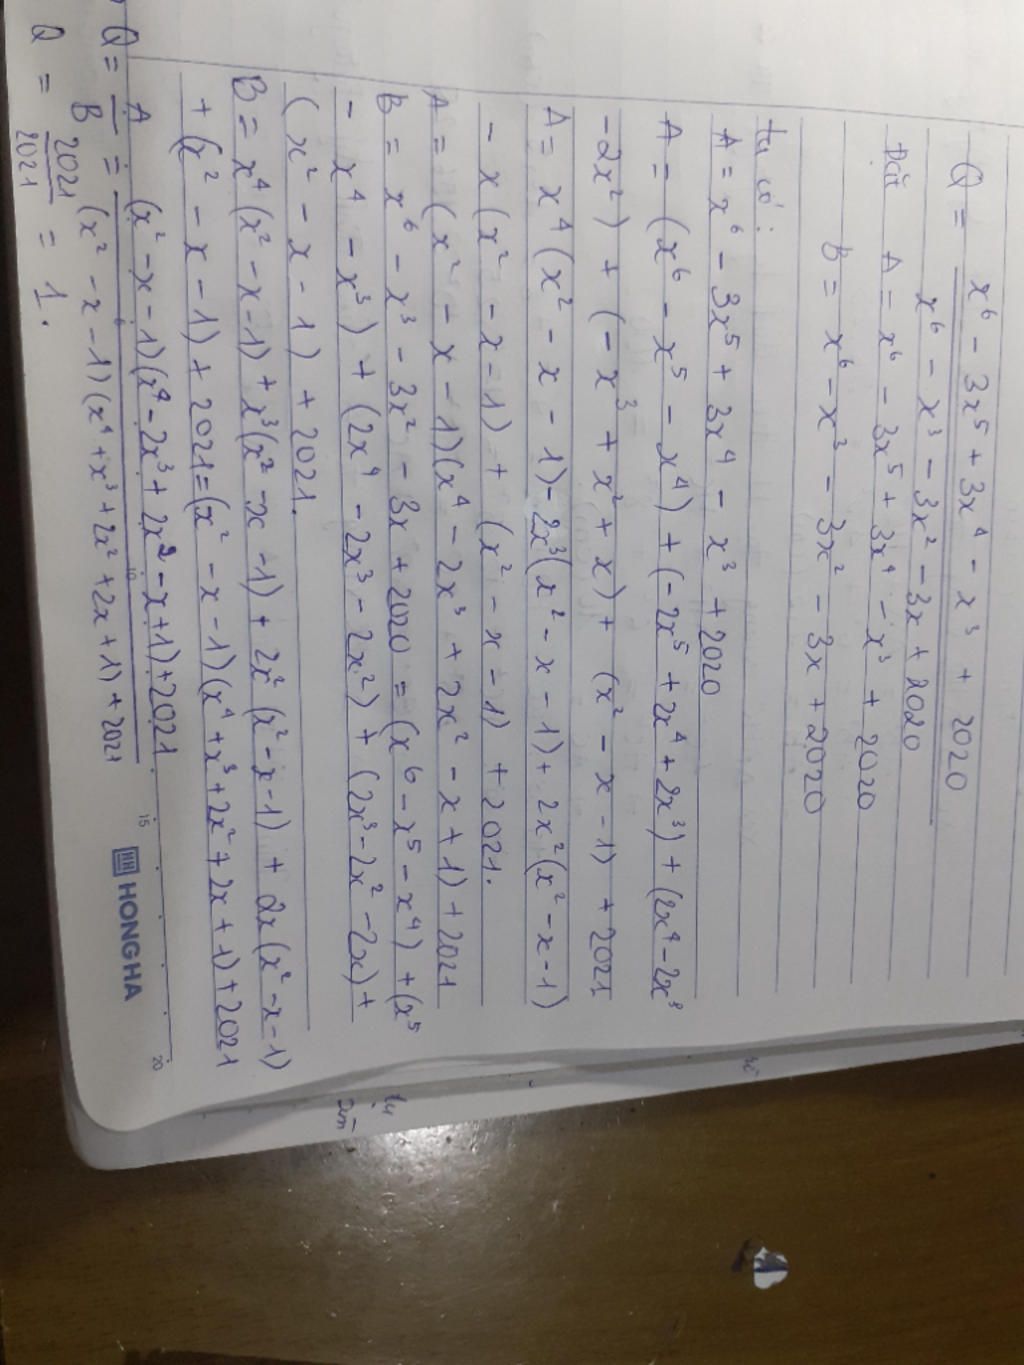 Q = x⁶ - 3x⁵ + 3x⁴ - x³ + 2020
x⁶ - x³ - 3x² - 3x + 2020
Đặt A = x⁶ - 3x⁵ + 3x⁴ - x³ + 2020
B = x⁶ - x³ - 3x² - 3x + 2020
Ta có:
A = x⁶ - 3x⁵ + 3x⁴ - x³ + 2020
A = (x⁶ - x⁵ - x⁴) + (-2x⁵ + 2x⁴ + 2x³) + (2x⁴ - 2x³
-2x²) + (-x³ + x² + x) + (x² - x - 1) + 2021
A = x⁴(x² - x - 1) - 2x³(x² - x - 1) + 2x²(x² - x - 1)
- x(x² - x - 1) + (x² - x - 1) + 2021.
A = (x² - x - 1)(x⁴ - 2x³ + 2x² - x + 1) + 2021
B = x⁶ - x³ - 3x² - 3x + 2020 = (x⁶ - x⁵ - x⁴) + (x⁵
- x⁴ - x³) + (2x⁴ - 2x³ - 2x²) + (2x³ - 2x² - 2x) +
(x² - x - 1) + 2021.
B = x⁴(x² - x - 1) + x³(x² - x - 1) + 2x²(x² - x - 1) + 2x(x² - x - 1)
+ (x² - x - 1) + 2021 = (x² - x - 1)(x⁴ + x³ + 2x² + 2x + 1) + 2021
Q = A = (x² - x - 1)(x⁴ - 2x³ + 2x² - x + 1) + 2021
B (x² - x - 1)(x⁴ + x³ + 2x² + 2x + 1) + 2021
Q = 2021 = 1.
2021
10
15
20
HH HONGHA